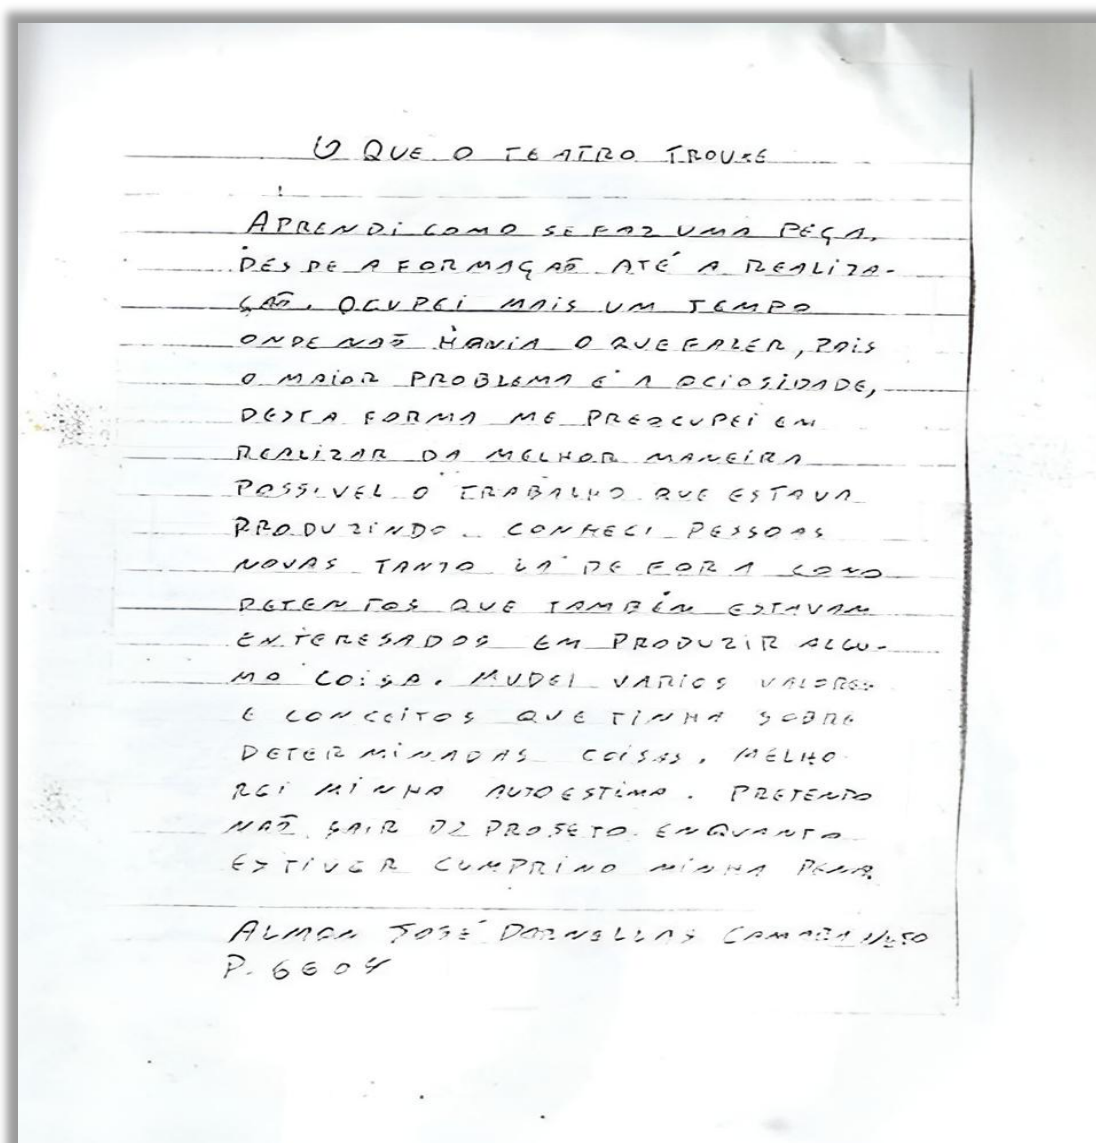 O QUE O TEATRO TROUXE
APRENDI COMO SE FAZ UMA PEÇA,
DESDE A FORMAÇÃO ATÉ A REALIZA-
ÇÃO. OCUPEI MAIS UM TEMPO
ONDE NÃO HAVIA O QUE FAZER, POIS
O MAIOR PROBLEMA É A OCIOSIDADE,
DESTA FORMA ME PREOCUPEI EM
REALIZAR DA MELHOR MANEIRA
POSSIVEL O TRABALHO QUE ESTAVA
PRODUZINDO. CONHECI PESSOAS
NOVAS TANTO LÁ DE FORA COMO
DETENTOS QUE TAMBÉM ESTAVAM
ENTERESADOS EM PRODUZIR ALGU-
MA COISA. MUDEI VARIOS VALORES
E CONCEITOS QUE TINHA SOBRE
DETERMINADAS COISAS. MELHO-
REI MINHA AUTOESTIMA. PRETENDO
NÃO SAIR DO PROJETO ENQUANTO
ESTIVER CUMPRINO MINHA PENA.
JOSÉ DORNELLAS CAMARA NETO
P. 6604